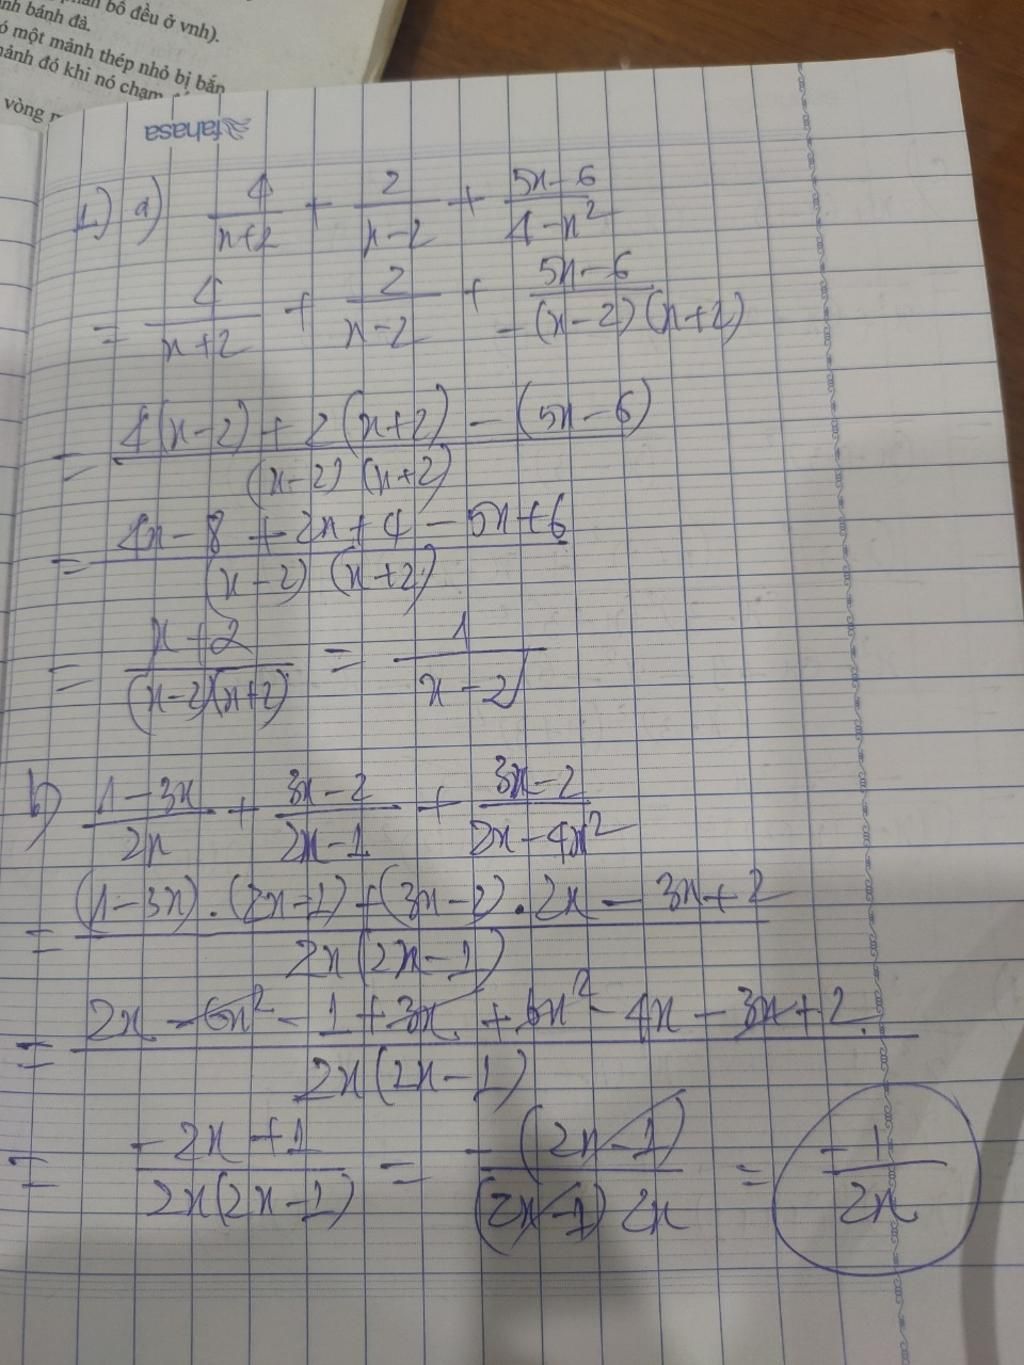 bố đều ở vnh).
nh bánh đà.
ó một mảnh thép nhỏ bị bắn
ảnh đó khi nó chạm
vòng
fahasa
1) a) 4/(x+2) + 2/(x-2) + (5x-6)/(4-x²)
= 4/(x+2) + 2/(x-2) + (5x-6)/(-(x-2)(x+2))
= (4(x-2) + 2(x+2) - (5x-6))/((x-2)(x+2))
= (4x-8+2x+4-5x+6)/((x-2)(x+2))
= (x+2)/((x-2)(x+2)) = 1/(x-2)
b) (1-3x)/(2x) + (3x-2)/(2x-1) + (3x-2)/(2x-4x²)
= ((1-3x).(2x-1)+(3x-2).2x-3x+2)/(2x(2x-1))
= (2x-6x²-1+3x+6x²-4x-3x+2)/(2x(2x-1))
= (-2x+1)/(2x(2x-1)) = -(2x-1)/((2x-1)2x) = -1/(2x)